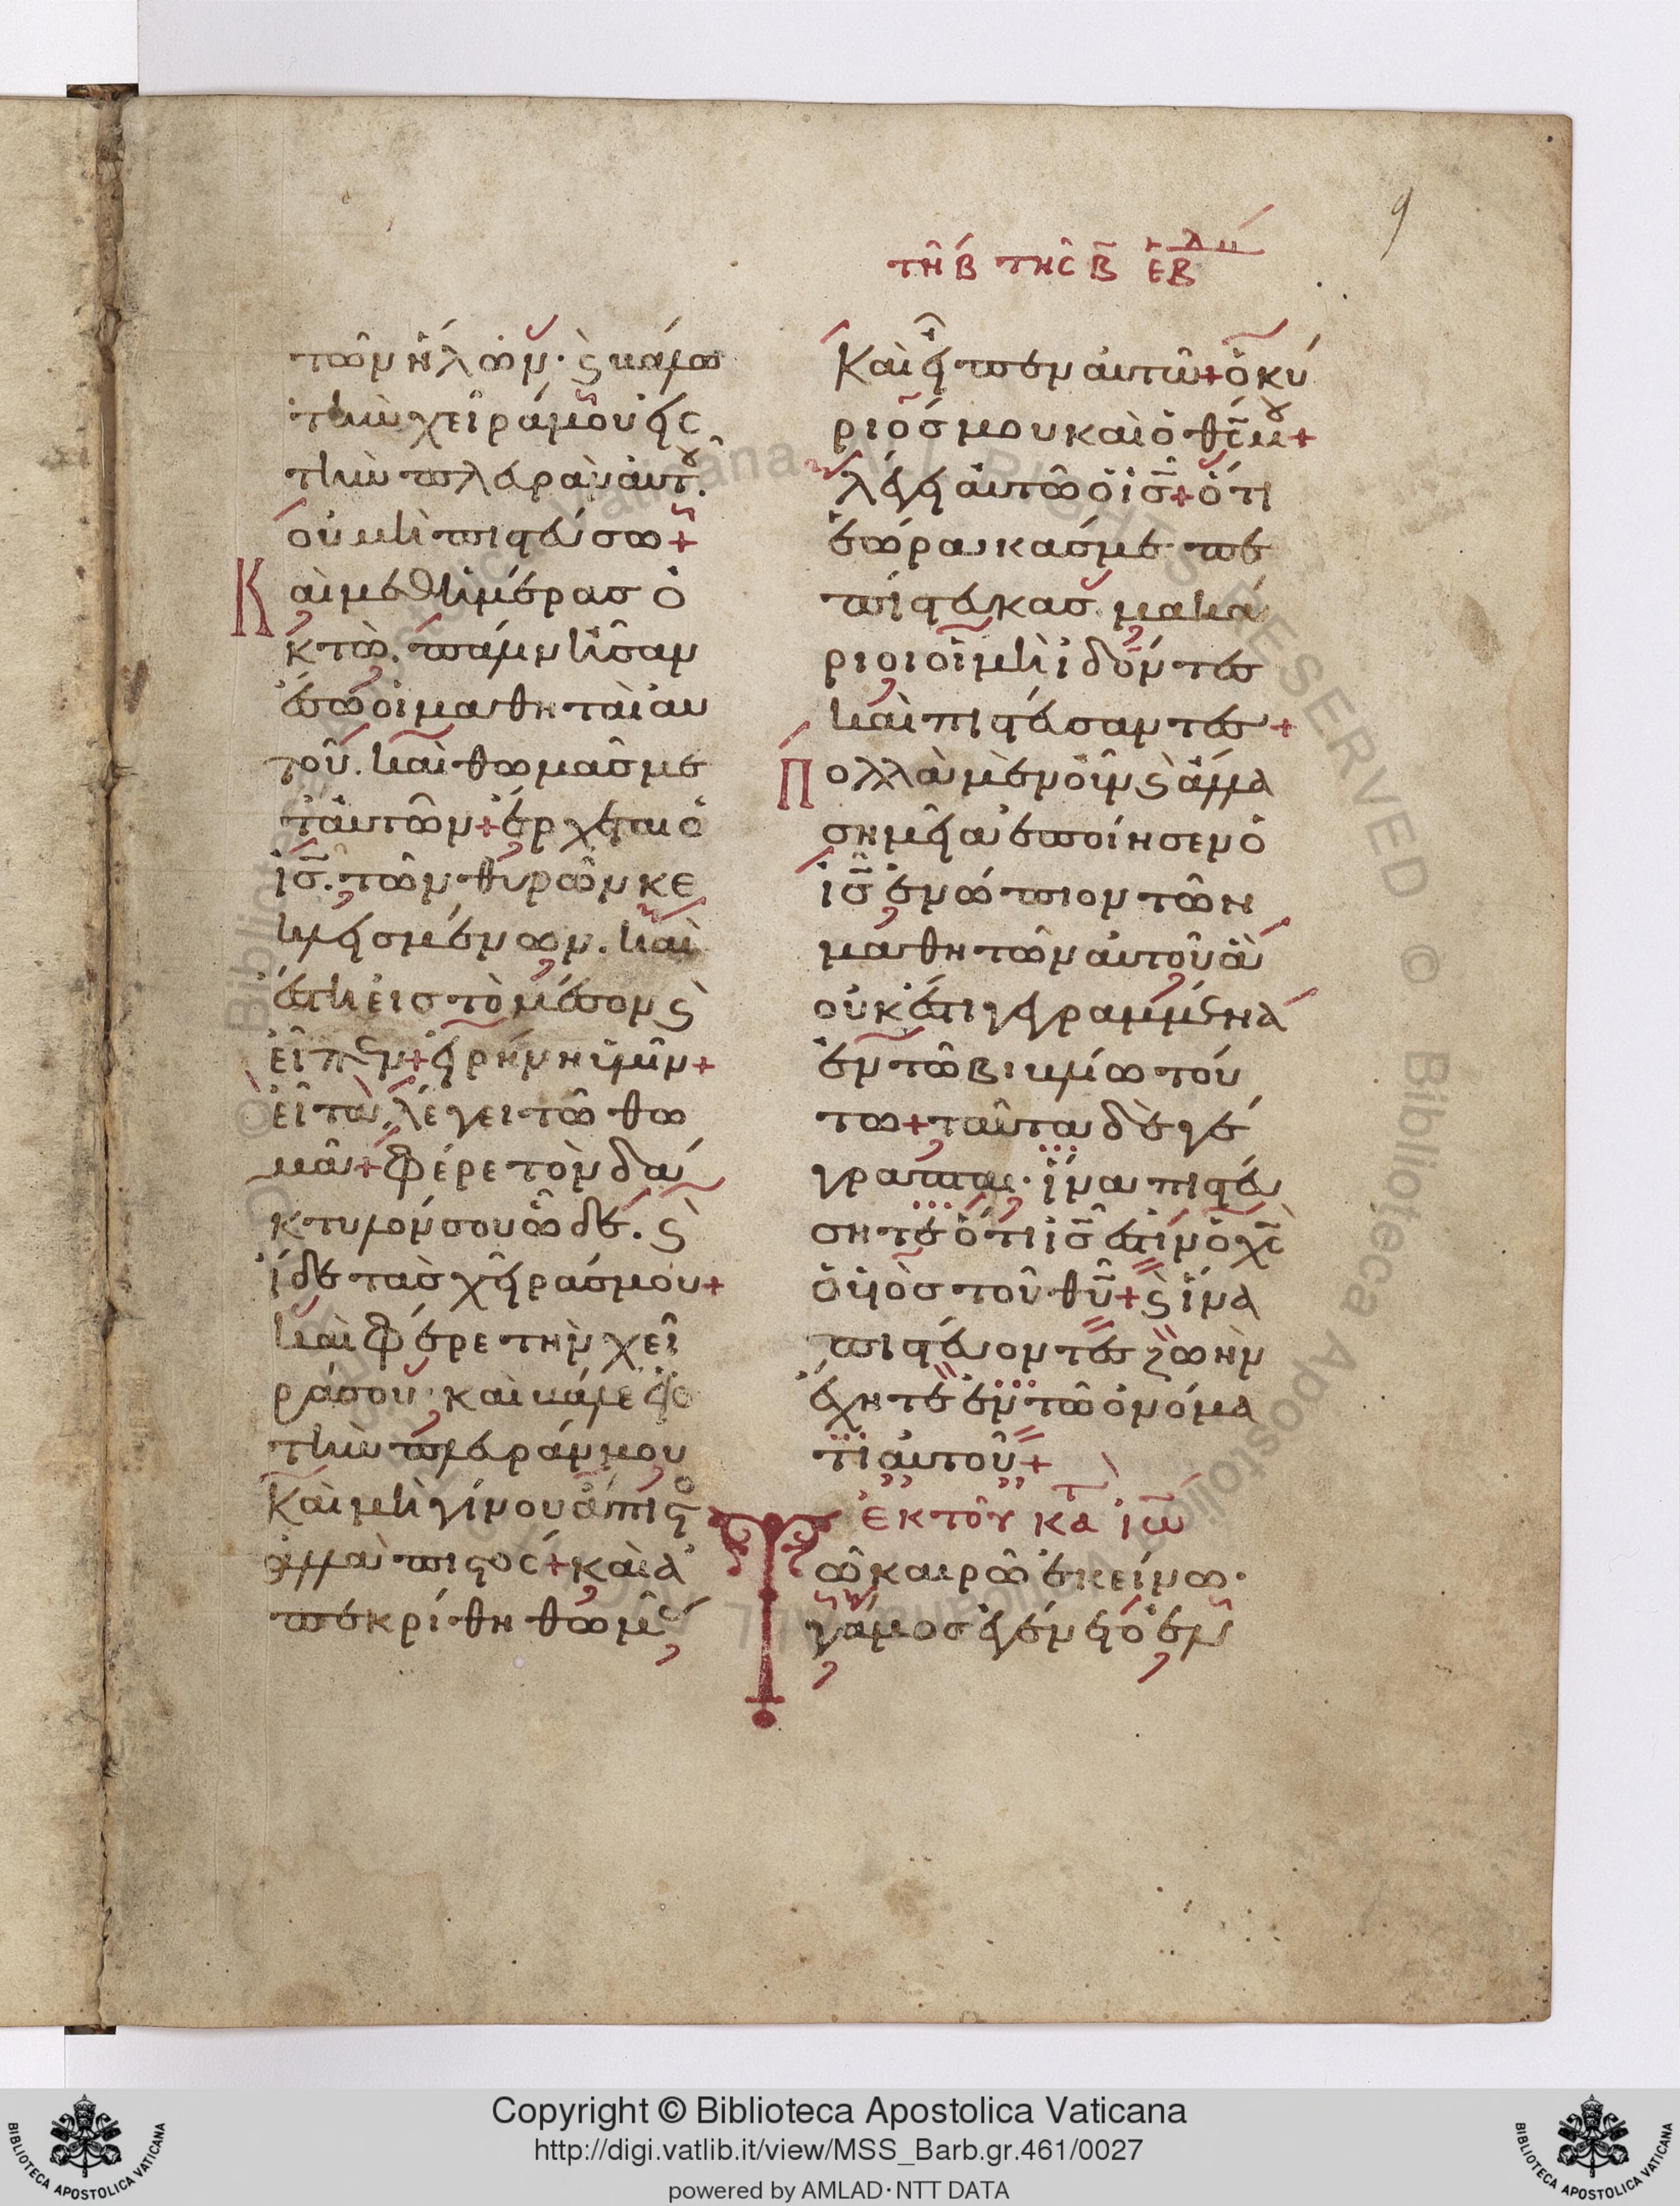 9
τῆ β τῆς β ἑβδ
τῶν ἥλων· ϗ βάλω
τὴν χεῖρά μου εἰς
τὴν πλευρὰν αὐτοῦ.
οὐ μὴ πιστεύσω+
Καὶ μεθ ἡμέρας ὀ
κτὼ. πάλιν ἦσαν
ἔσω οἱ μαθηταὶ αυ
τοῦ. καὶ θωμᾶς με
τ αὐτῶν+ ἔρχεται ὁ
ις̅. τῶν θυρῶν κε
κλεισμένων. καὶ
ἔστη εἰς τὸ μέσον ϗ
εἶπεν+ εἰρήνη ὑμῖν+
εἶτα λέγει τῶ θω
μᾶ+ φέρε τὸν δά
κτυλόν σου ὧδε. ϗ
ἴδε τὰς χεῖράς μου+
καὶ φέρε τὴν χεῖ
ρά σου· καὶ βάλε εἰς
τὴν πλευράν μου
Καὶ μὴ γίνου ἄπιστο
ἀλλὰ πιστος+ καὶ ἀ
πεκρίθη θωμᾶς
Καὶ εἶπεν αὐτῶ+ ὁ κύ
ριός μου καὶ ὁ θς̅ μου+
λέγει αὐτῶ ὁ ις̅+ ὅτι
ἑώρακάς με πε
πίστευκας. μακά
ριοι οἱ μὴ ἰδόντες
καὶ πιστεύσαντες+
Πολλὰ μὲν οὖν ϗ ἄλλα
σημεῖα ἐποίησεν ὁ
ις̅ ἐνώπιον τῶν
μαθητῶν αὐτοῦ ἃ
οὐκ ἔστι γεγραμμένα
ἐν τῶ βιβλίω τού
τω+ ταῦτα δὲ γέ
γραπται· ἵνα πιστεύ
σητε ὅτι ις̅ ἐστὶν ὁ χς̅
ὁ υἱὸς τοῦ θυ̅+ ϗ ἵνα
πιστεύοντες ζωὴν
ἔχητε ἐν τῶ ὀνόμα
τι αὐτοῦ+
ἐκ τοῦ κατ ιω̅
Τῶ καιρῶ ἐκείνω·
γάμος ἐγένετο ἐν
Copyright © Biblioteca Apostolica Vaticana
http://digi.vatlib.it/view/MSS_Barb.gr.461/0027
powered by AMLAD·NTT DATA
BIBLIOTECA APOSTOLICA VATICANA
BIBLIOTECA APOSTOLICA VATICANA